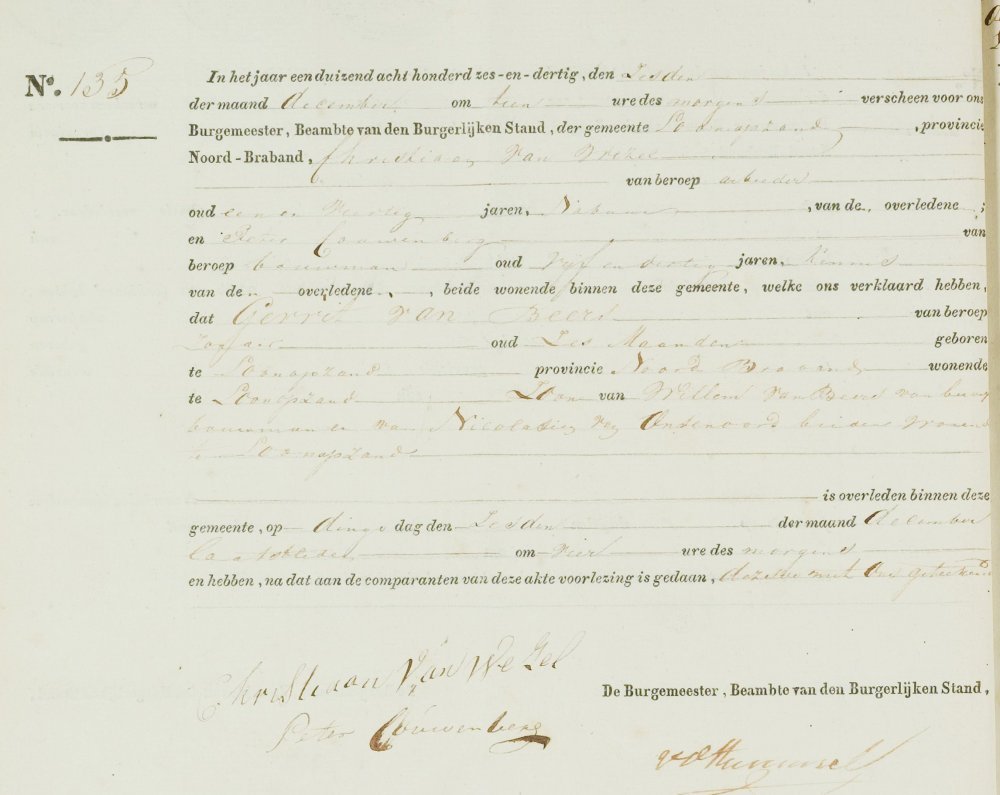 N.º 135
In het jaar een duizend acht honderd zes-en-dertig, den Zesden
der maand december om tien ure des morgens verscheen voor ons
Burgemeester, Beambte van den Burgerlijken Stand, der gemeente Loonopzand, provincie
Noord-Braband, Christiaan Van Wezel
van beroep arbeider
oud een en Veertig jaren, Nabuur, van de overledene;
en Peter Couwenberg van
beroep bouwman oud Vijf en dertig jaren, Kennis
van de overledene, beide wonende binnen deze gemeente, welke ons verklaard hebben,
dat Gerrit Van Beers van beroep
oud Zes Maanden geboren
te Loonopzand provincie Noord Braband wonende
te Loonopzand Zoon van Willem Van Beers van
bouwman en van beiden wonende
te Loonopzand
is overleden binnen deze
gemeente, op dings dag den Zesden der maand december
om vier ure des morgens
en hebben, na dat aan de comparanten van deze akte voorlezing is gedaan, dezelve met Ons geteekend
Christiaan Van Wezel
De Burgemeester, Beambte van den Burgerlijken Stand,
Peter Couwenberg